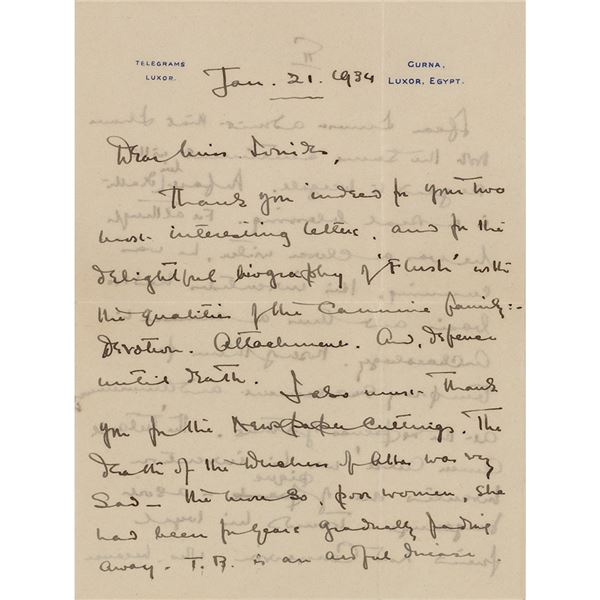 TELEGRAMS
LUXOR.
GURNA,
LUXOR, EGYPT.
Jan. 21. 1934
Dear Miss. Ionides,
Thank you indeed for your two
most interesting letters, and for the
delightful biography of 'Flush' with
the qualities of the Cannine family:-
Devotion. Attachment. And, defence
until death. I also must thank
you for the Newspaper Cuttings. The
death of the Duchess of Alba was very
Sad — the more so, poor women, she
had been for years gradually fading
away. T.B. is an awful disease.